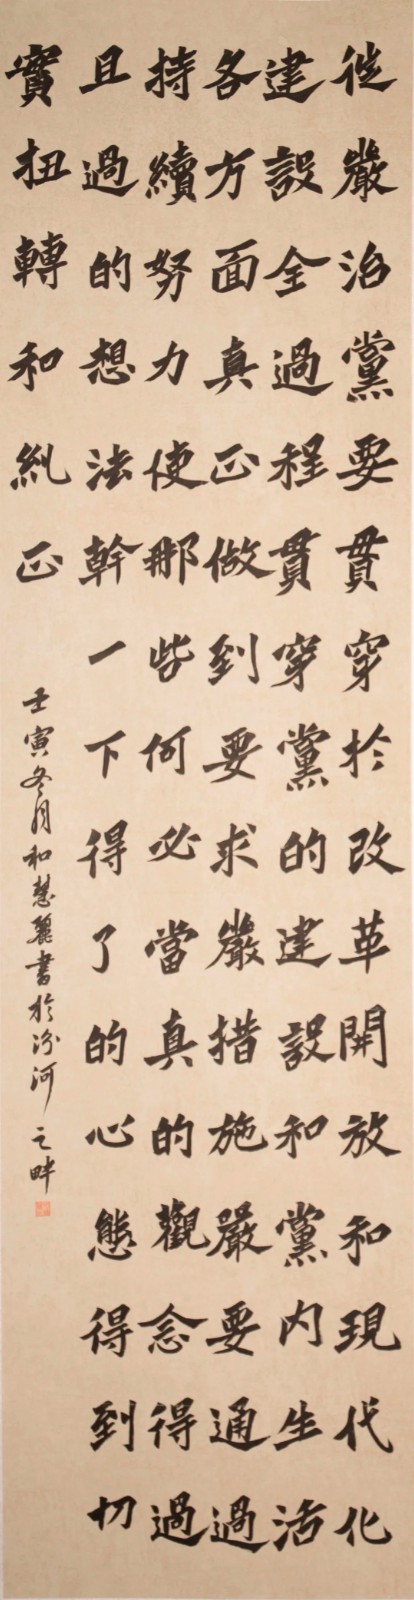 從嚴治黨要貫穿於改革開放和現代化
建設全過程貫穿黨的建設和黨内生活
各方面真正做到要求嚴措施嚴要通過
持續努力使那些何必當真的觀念得過
且過的想法幹一下得了的心態得到切
實扭轉和糾正
壬寅冬月和慧麗書於汾河之畔